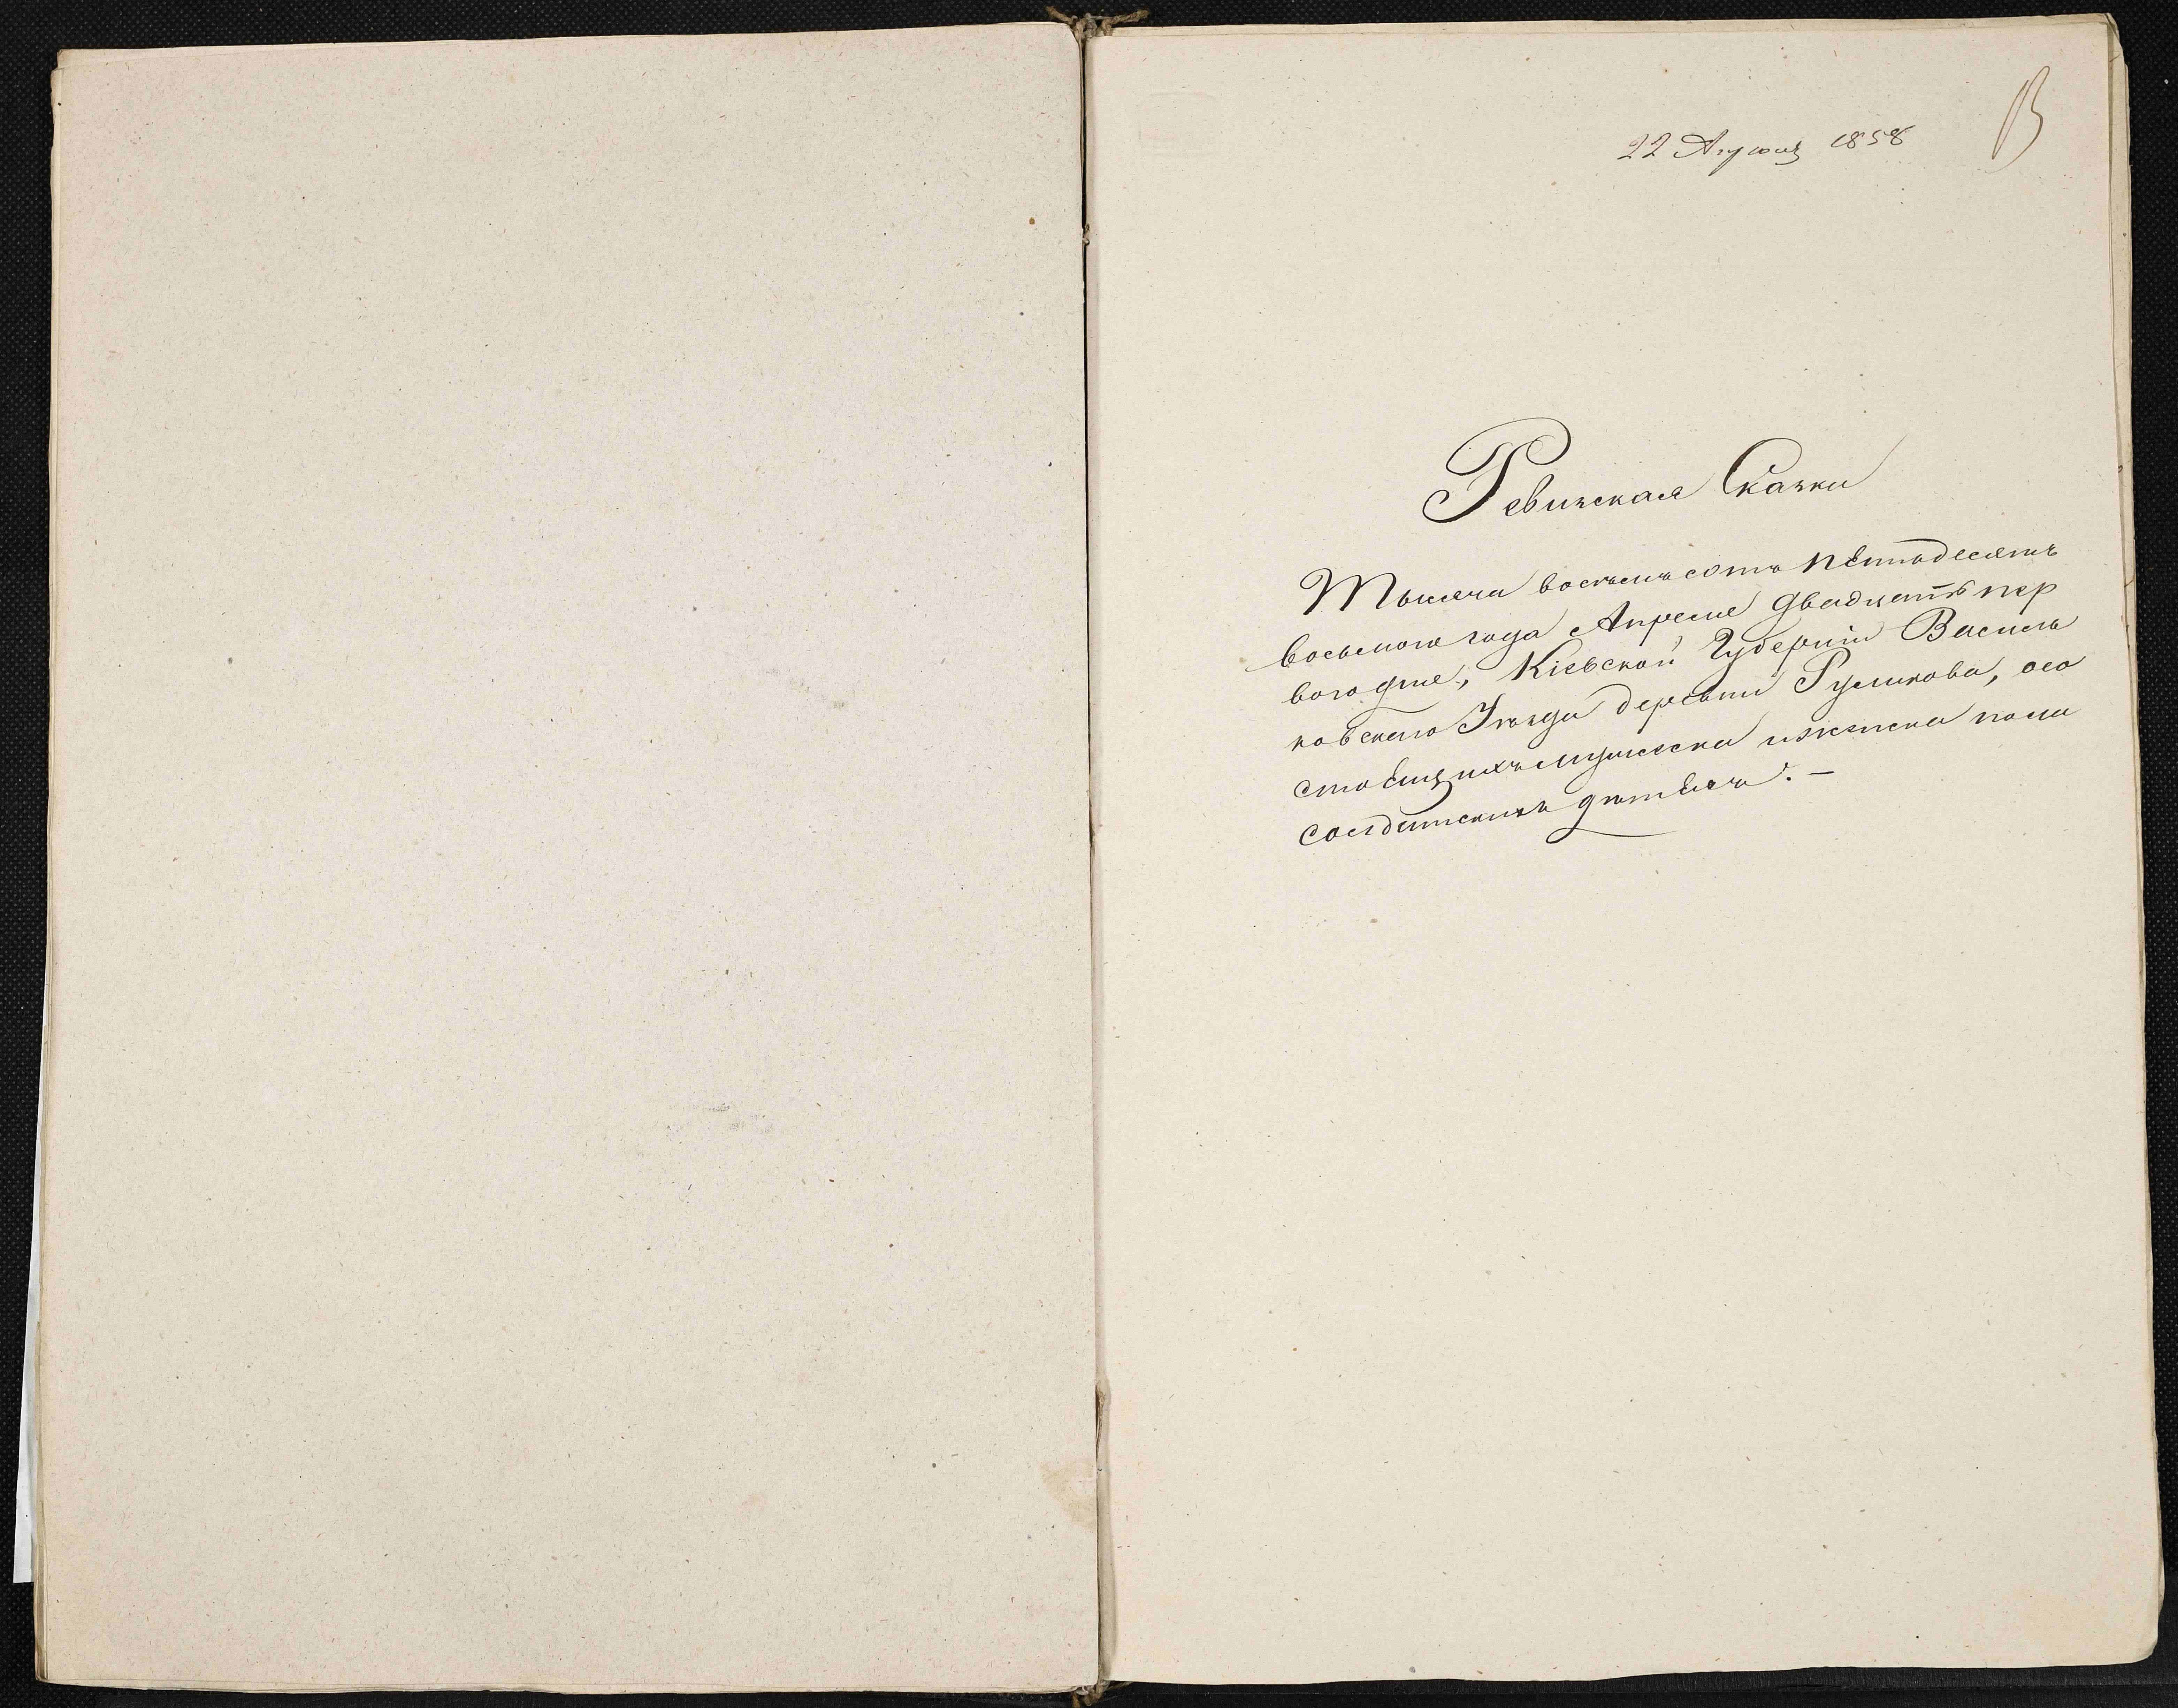 22 Апреля 1858
В
Ревизская Сказка
Тысяча восемьсотъ пятьдесятъ
восьмаго года Апреля двадцать пер
ваго дня, Кіевской Губерніи Василь
ковскаго Уезда деревни Руликова, осо
стоящихъ мужеска и женска пола
солдатскихъ детяхъ. —